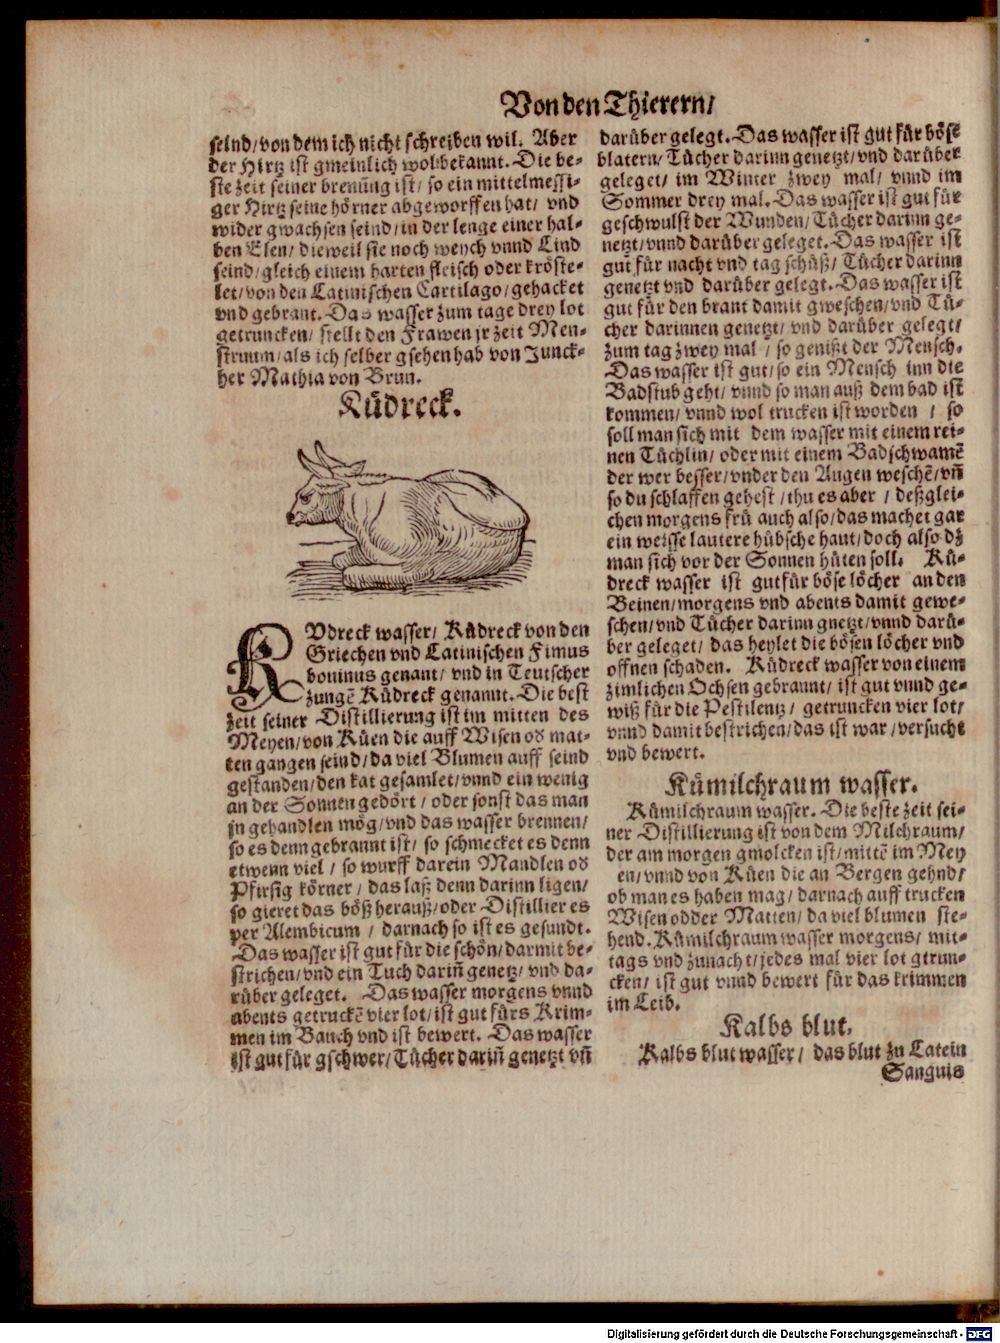 Von den Thierern/
seind/von dem ich nicht schreiben wil. Aber
der Hirtz ist gmeinlich wol bekannt. Die be-
ste zeit seiner brenũng ist/ so ein mittelmessi-
ger Hirtz seine hörner abgeworffen hat/ vnd
wider gwachsen seind/in der lenge einer hal-
ben Elen/ dieweil sie noch weych vnnd Lind
seind/gleich einem harten fleisch oder kröste-
let/von den Latinischen Cartilago/gehacket
vnd gebrant. Das wasser zum tage drey lot
getruncken/ stellt den Frawen jr zeit Men-
struum/als ich selber gsehen hab von Junck-
her Mathia von Brun.
Kůdreck.
KVdreck wasser/ Kůdreck von den
Griechen vnd Latinischen Fimus
bouinus genant/ vnd in Teutscher
zungẽ Kůdreck genannt. Die best
zeit seiner Distillierung ist im mitten des
Meyen/von Küen die auff Wisen od mat-
ten gangen seind/da viel Blumen auff seind
gestanden/den kat gesamlet/vnnd ein wenig
an der Sonnen gedört/ oder sonst das man
jn gehandlen mög/vnd das wasser brennen/
so es denn gebrannt ist/ so schmecket es denn
etwenn viel/ so wurff darein Mandlen od
Pfirsig körner/ das laß denn darinn ligen/
so gieret das böß herauß/oder Distillier es
per Alembicum/ darnach so ist es gesundt.
Das wasser ist gut für die schön/darmit be-
strichen/vnd ein Tuch dariñ genetz/ vnd da-
rüber geleget. Das wasser morgens vnnd
abents getruckẽ vier lot/ist gut fürs Krim-
men im Bauch vnd ist bewert. Das wasser
ist gut für gschwer/Tücher dariñ genetzt vñ
darüber gelegt. Das wasser ist gut für böse
blatern/ Tücher darinn genetzt/ vnd darüber
geleget/ im Winter zwey mal/ vnnd im
Sommer drey mal. Das wasser ist gut für
geschwulst der Wunden/ Tücher darinn ge-
netzt/vnnd darüber geleget. Das wasser ist
gut für nacht vnd tag schüß/ Tücher darinn
genetzt vnd darüber gelegt. Das wasser ist
gut für den brant damit gweschen/vnd Tü-
cher darinnen genetzt/ vnd darüber gelegt/
zum tag zwey mal/ so genißt der Mensch.
Das wasser ist gut/ so ein Mensch inn die
Badstub geht/ vnnd so man auß dem bad ist
kommen/ vnnd wol trucken ist worden/ so
soll man sich mit dem wasser mit einem rei-
nen Tüchlin/ oder mit einem Badschwamẽ
der wer besser/vnder den Augen weschẽ/vñ
so du schlaffen gehest/thu es aber/ deßglei-
chen morgens frü auch also/das machet gar
ein weisse lautere hübsche haut/doch also dz
man sich vor der Sonnen hüten soll. Ků-
dreck wasser ist gut für böse löcher an den
Beinen/morgens vnd abents damit gewe-
schen/vnd Tücher darinn gnetzt/vnnd darü-
ber geleget/ das heylet die bösen löcher vnd
offnen schaden. Kůdreck wasser von einem
zimlichen Ochsen gebrannt/ ist gut vnnd ge-
wiß für die Pestilentz/ getruncken vier lot/
vnnd damit bestrichen/das ist war/versucht
vnd bewert.
Kůmilchraum wasser.
Kůmilchraum wasser. Die beste zeit sei-
ner Distillierung ist von dem Milchraum/
der am morgen gmolcken ist/mittẽ im Mey
en/vnnd von Küen die an Bergen gehnd/
ob man es haben mag/ darnach auff trucken
Wisen odder Matten/ da viel blumen ste-
hend. Kůmilchraum wasser morgens/ mit-
tags vnd zunacht/jedes mal vier lot gtrun-
cken/ ist gut vnnd bewert für das krimmen
im Leib.
Kalbs blut.
Kalbs blut wasser/ das blut zu Latein
Sanguis
Digitalisierung gefördert durch die Deutsche Forschungsgemeinschaft - DFG